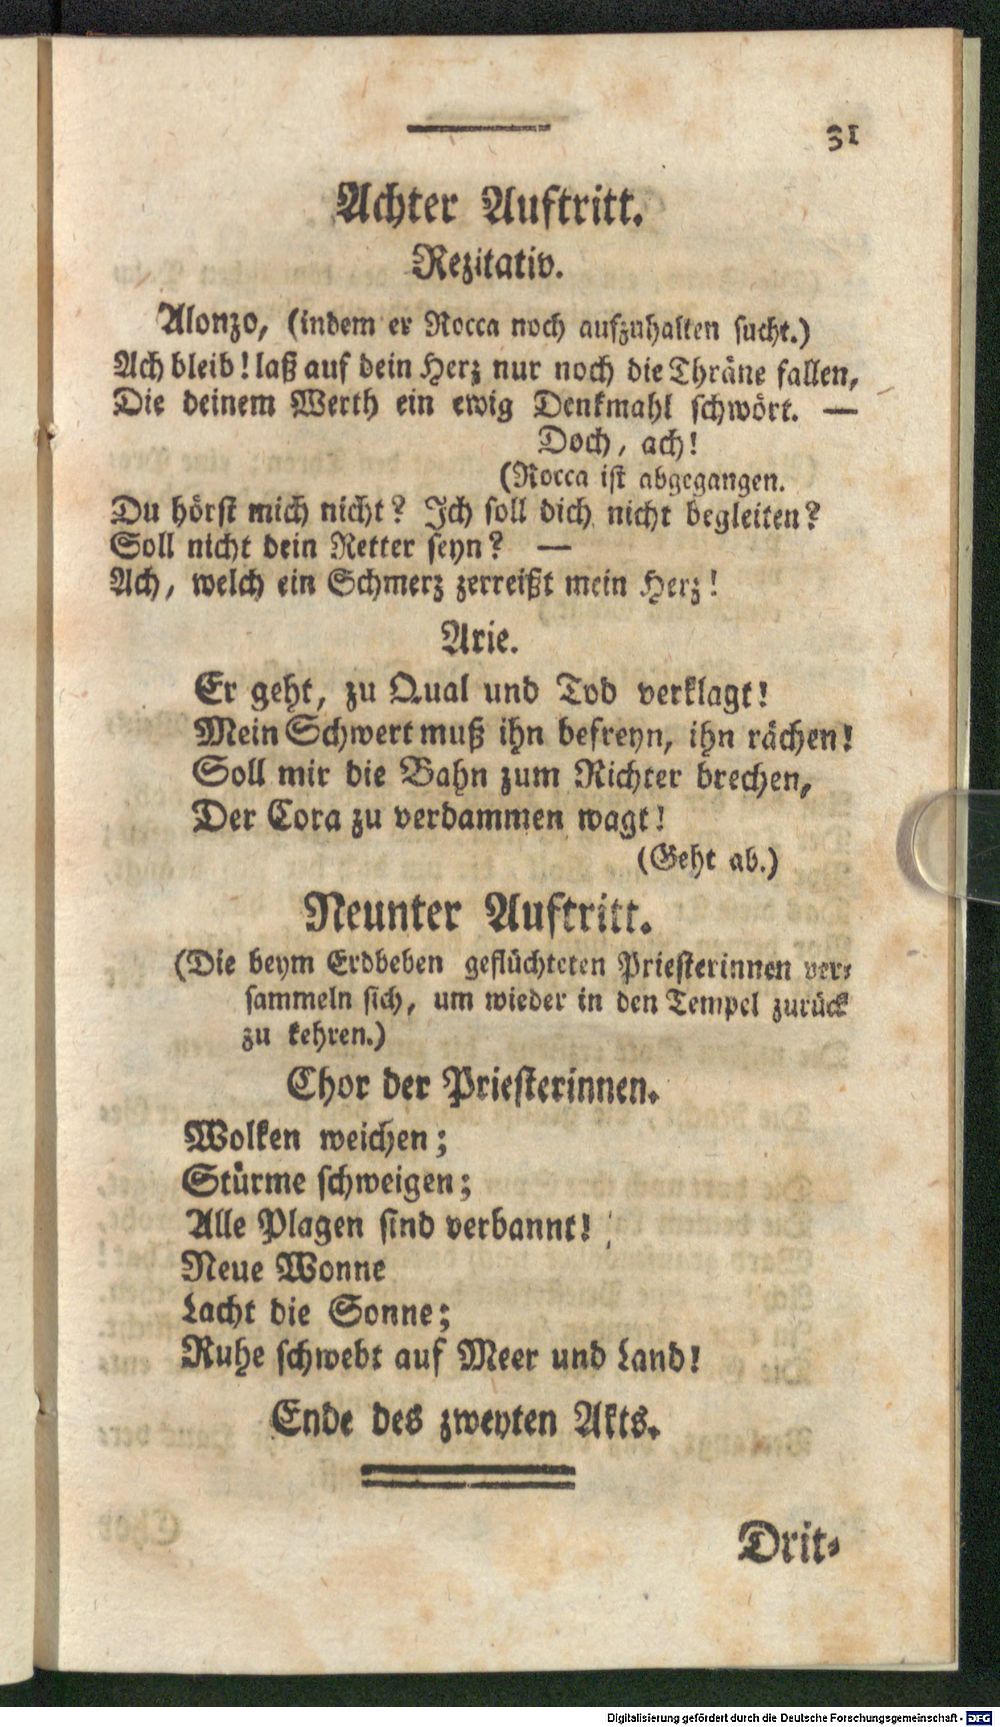 31
Achter Auftritt.
Rezitativ.
Alonzo, (indem er Rocca noch aufzuhalten sucht.)
Ach bleib! laß auf dein Herz nur noch die Thräne fallen,
Die deinem Werth ein ewig Denkmahl schwört. —
Doch, ach!
(Rocca ist abgegangen.
Du hörst mich nicht? Ich soll dich nicht begleiten?
Soll nicht dein Retter seyn? —
Ach, welch ein Schmerz zerreißt mein Herz!
Arie.
Er geht, zu Qual und Tod verklagt!
Mein Schwert muß ihn befreyn, ihn rächen!
Soll mir die Bahn zum Richter brechen,
Der Cora zu verdammen wagt!
(Geht ab.)
Neunter Auftritt.
(Die beym Erdbeben geflüchteten Priesterinnen ver-
sammeln sich, um wieder in den Tempel zurück
zu kehren.)
Chor der Priesterinnen.
Wolken weichen;
Stürme schweigen;
Alle Plagen sind verbannt!
Neue Wonne
Lacht die Sonne;
Ruhe schwebt auf Meer und Land!
Ende des zweyten Akts.
Drit-
Digitalisierung gefördert durch die Deutsche Forschungsgemeinschaft - DFG